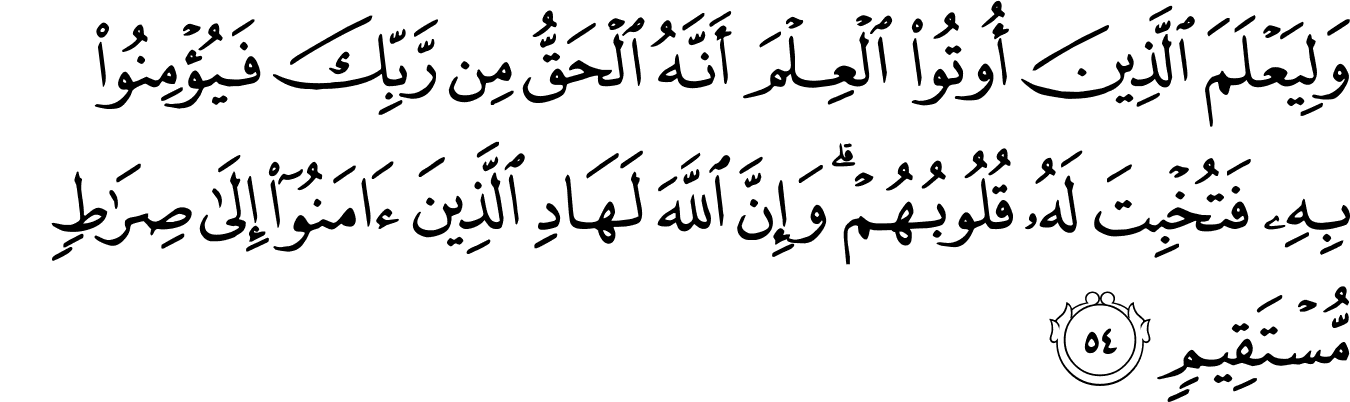 وَلِيَعْلَمَ ٱلَّذِينَ أُوتُوا۟ ٱلْعِلْمَ أَنَّهُ ٱلْحَقُّ مِن رَّبِّكَ فَيُؤْمِنُوا۟
بِهِۦ فَتُخْبِتَ لَهُۥ قُلُوبُهُمْ ۗ وَإِنَّ ٱللَّهَ لَهَادِ ٱلَّذِينَ ءَامَنُوٓا۟ إِلَىٰ صِرَٰطٍ
مُّسْتَقِيمٍ ٥٤